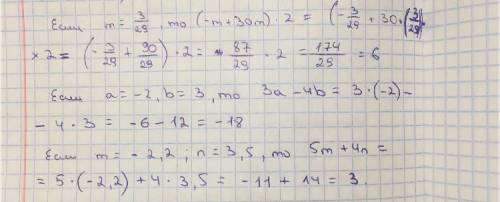 Если m = 3/29, то (-m+30m) · 2 = (-3/29 + 30 · (3/29))
× 2 = (-3/29 + 90/29) · 2 = 87/29 · 2 = 174/29 = 6
Если a = -2, b = 3, то 3a - 4b = 3 · (-2) -
- 4 · 3 = -6 - 12 = -18
Если m = -2,2; n = 3,5, то 5m + 4n =
= 5 · (-2,2) + 4 · 3,5 = -11 + 14 = 3.